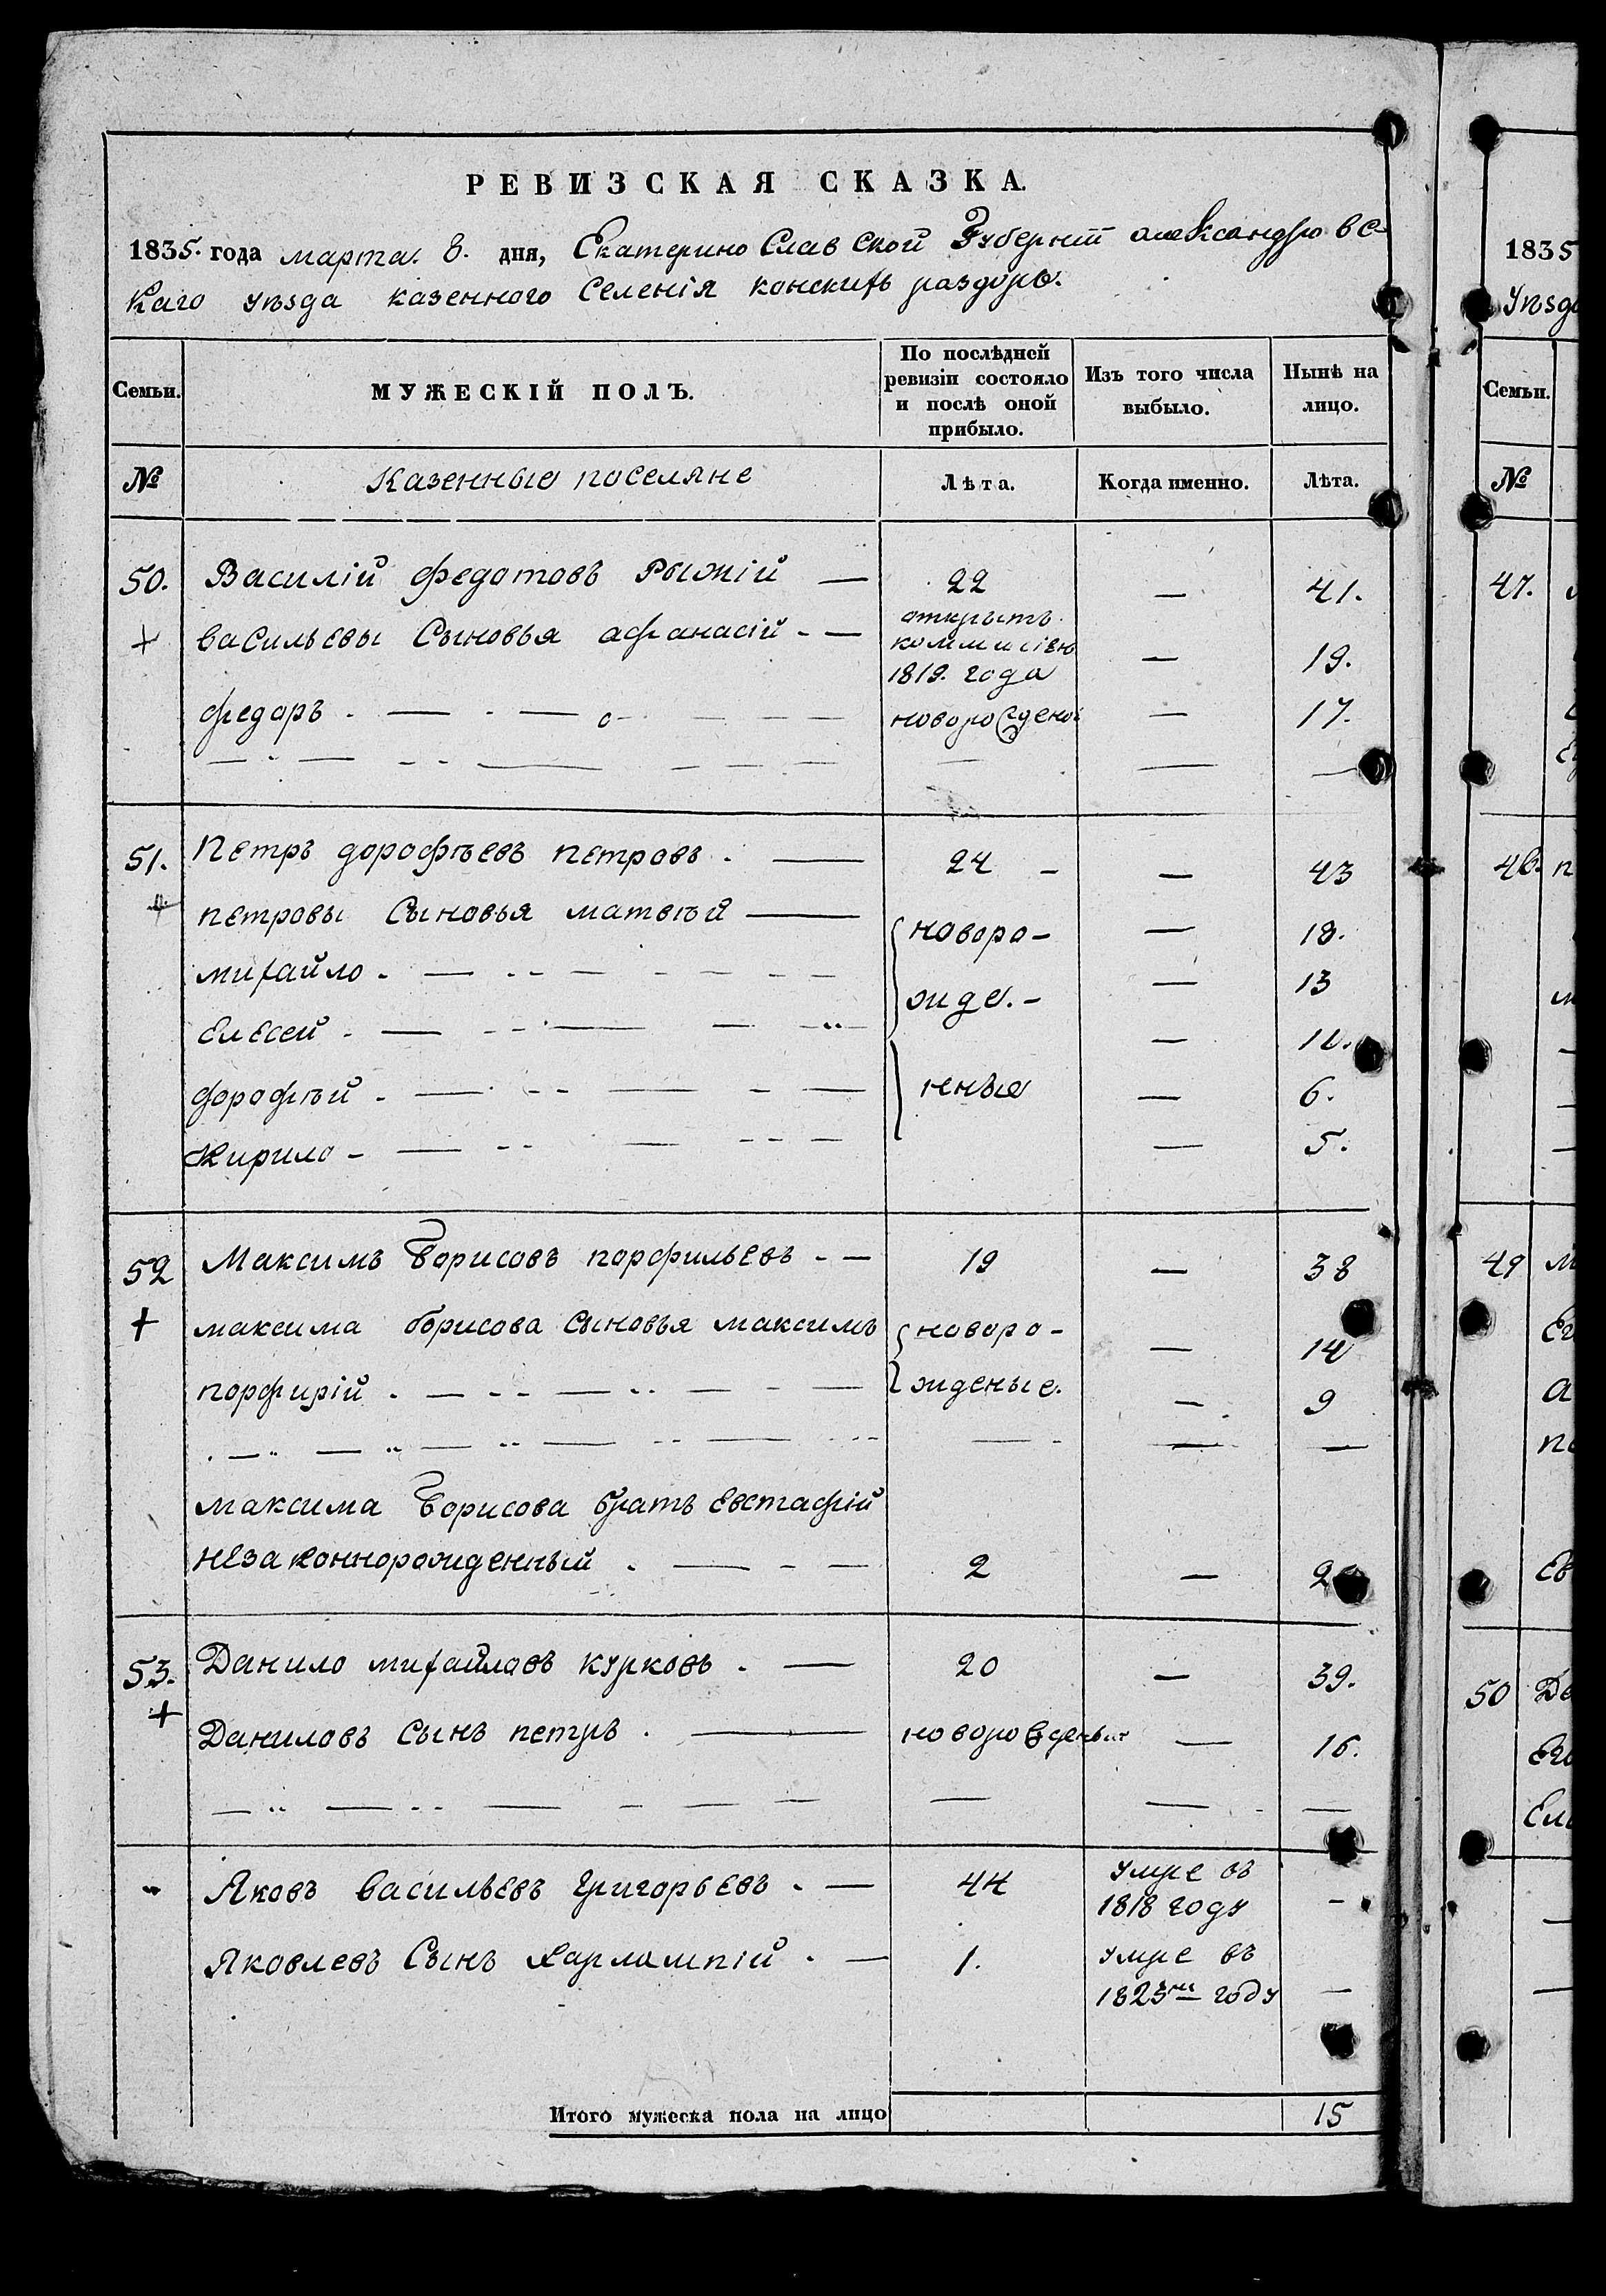 РЕВИЗСКАЯ СКАЗКА.
1835. года марта. 8. дня, Екатерино Славской Губерніи александровс
каго уѣзда казенного Селенія конскихъ раздоръ.
Семьи.
МУЖЕСКІЙ ПОЛЪ.
По послѣдней ревизіи состояло и послѣ оной прибыло.
Изъ того числа выбыло.
Нынѣ на лицо.
№ Казенные поселяне Лѣта. Когда именно. Лѣта.
50. Василій федотовъ Рыжій — 22 — 41.
+ васильевы Сыновья афанасій - — открытъ коммисіею 1819. года — 19.
федоръ новорожденой — 17.
51. Петръ дорофѣевъ петровъ. — 24 — — 43
+ петровы Сыновья матвѣй — новоро- — 18.
михайло - — 13
жде. -
Елесей - —
дорофѣй - нные — 6.
Кирило - — 5.
52 Максимъ Борисовъ порфильевъ - — 19 — 38
+ максима борисова Сыновья максимъ новоро- — 14
порфирій - жденые. — 9
максима Борисова братъ Евстафій
незаконнорожденный . — 2 —
53. Данило михайловъ курковъ . — 20 — 39.
+ Даниловъ Сынъ петръ . — новорожденый — 16.
Яковъ васильевъ григорьевъ . — 44 умре въ 1818 году -
Яковлевъ Сынъ Харлампій . — 1. умре въ 1823мъ году —
Итого мужеска пола на лицо 15
1835
Уѣзд
Семьи.
№
47.
48. п
49 М
Ег
а
Ев
50 Де
Его
Ели